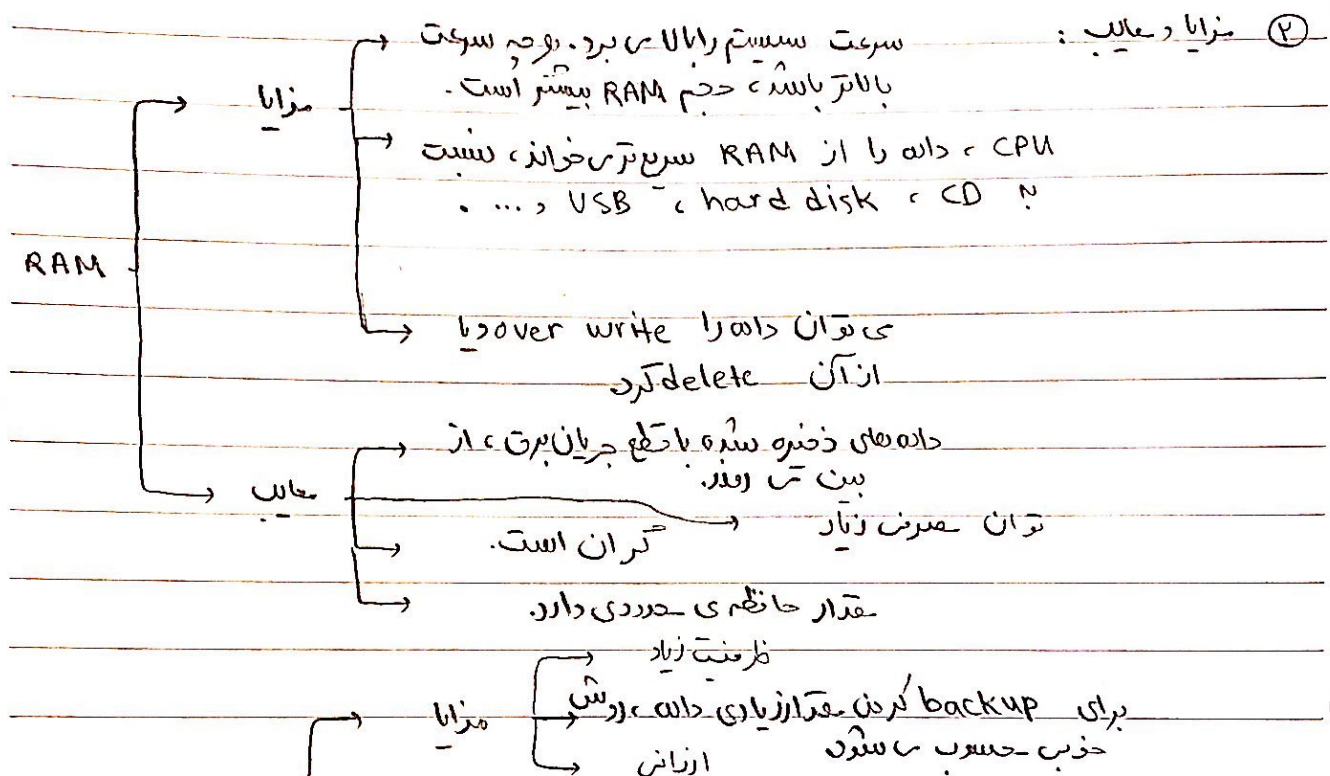 ② مزایا و معایب :
سرعت سیستم را بالا می برد. و هر چه سرعت
بالاتر باشد، حجم RAM بیشتر است.
مزایا
CPU ، داده را از RAM سریع تر می خواند، نسبت
به CD ، hard disk ، USB و ... .
RAM
می توان داده را over write و یا
از آن delete کرد.
داده های ذخیره شده با قطع جریان برق ، از
بین می روند.
معایب
توان مصرفی زیاد
گران است.
مقدار حافظه ی محدودی دارد.
ظرفیت زیاد
مزایا
برای backup کردن مقدار زیادی داده ، روش
خوبی محسوب می شود
ارزانی